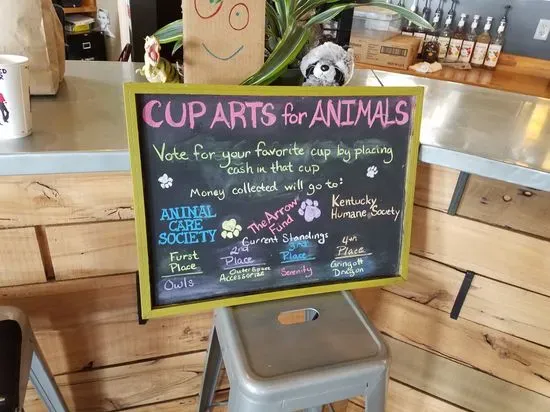 CUP ARTS for ANIMALS
Vote for your favorite cup by placing
cash in that cup
Money collected will go to:
ANIMAL
CARE
SOCIETY
The Arrow
Fund
Kentucky
Humane Society
Current Standings
Furst
Place
Owls
2nd
Place
Outer Space
Accessories
3rd
Place
Serenity
4th
Place
Gringott
Dragon